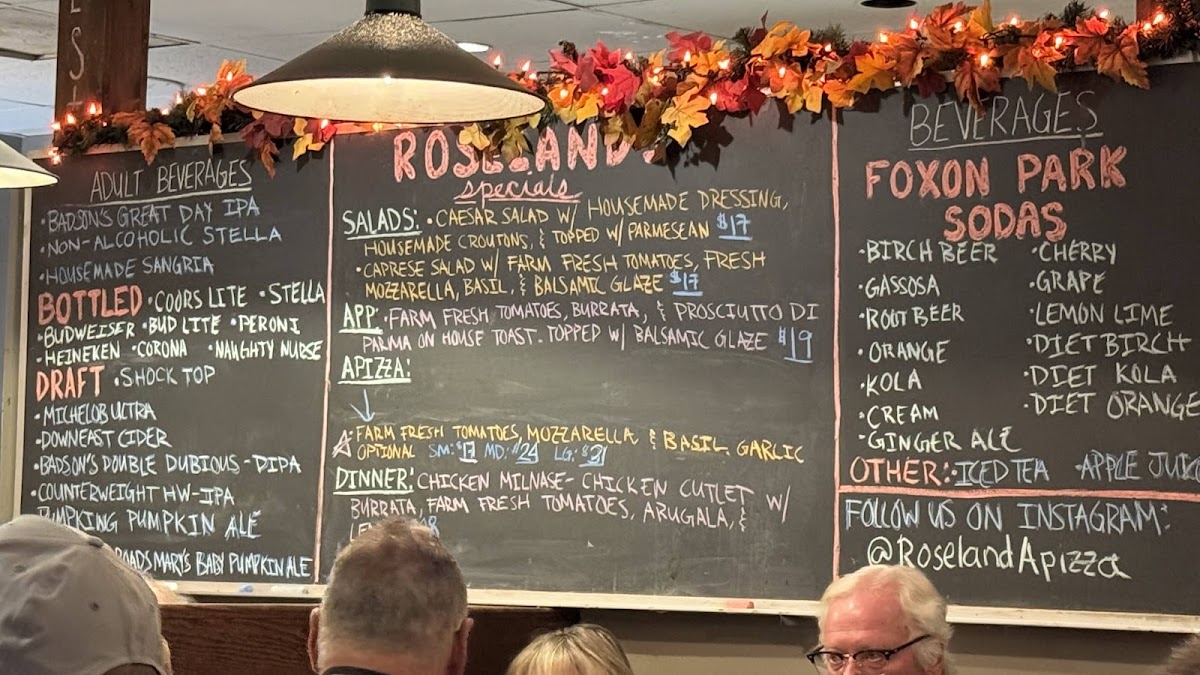 ES
ADULT BEVERAGES
•BADSON'S GREAT DAY IPA
•NON-ALCOHOLIC STELLA
•HOUSEMADE SANGRIA
BOTTLED •COORS LITE •STELLA
•BUDWEISER •BUD LITE •PERONI
•HEINEKEN •CORONA •NAUGHTY NURSE
DRAFT •SHOCK TOP
•MICHELOB ULTRA
•DOWNEAST CIDER
•BADSON'S DOUBLE DUBIOUS-DIPA
•COUNTERWEIGHT HW-IPA
PUMPKING PUMPKIN ALE
ROADSMARY'S BABY PUMPKIN ALE
ROSELAND'S
specials
SALADS: •CAESAR SALAD W/ HOUSEMADE DRESSING,
HOUSEMADE CROUTONS, & TOPPED W/ PARMESEAN $17
•CAPRESE SALAD W/ FARM FRESH TOMATOES, FRESH
MOZZARELLA, BASIL, & BALSAMIC GLAZE $17
APP: •FARM FRESH TOMATOES, BURRATA, & PROSCIUTTO DI
PARMA ON HOUSE TOAST. TOPPED W/ BALSAMIC GLAZE $19
APIZZA:
FARM FRESH TOMATOES, MOZZARELLA & BASIL GARLIC
OPTIONAL SM: $17 MD: $24 LG: $31
DINNER: CHICKEN MILNASE- CHICKEN CUTLET W/
BURRATA, FARM FRESH TOMATOES, ARUGALA, &
BEVERAGES
FOXON PARK
SODAS
•BIRCH BEER •CHERRY
•GASSOSA •GRAPE
•ROOT BEER •LEMON LIME
•ORANGE •DIET BIRCH
•KOLA •DIET KOLA
•CREAM •DIET ORANGE
•GINGER ALE
OTHER: •ICED TEA •APPLE JUIC
FOLLOW US ON INSTAGRAM:
@RoselandApizza